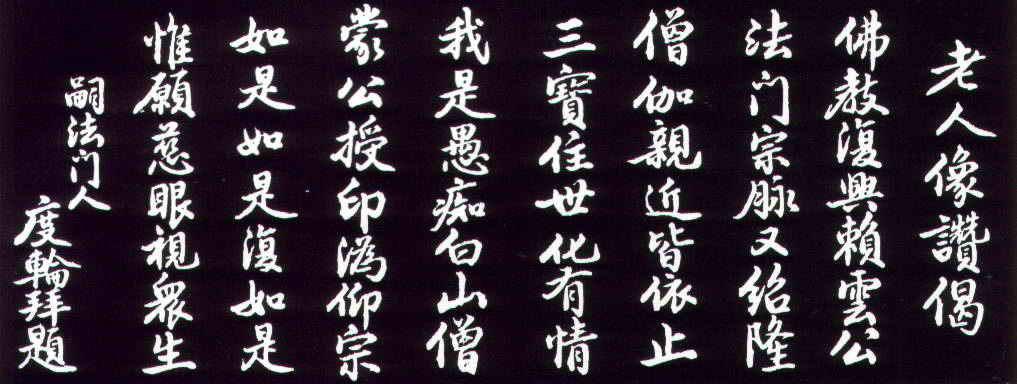 老人像讚偈
佛教復興賴雲公
法门宗脉又紹隆
僧伽親近皆依止
三寶住世化有情
我是愚痴白山僧
蒙公授印溈仰宗
如是如是復如是
惟願慈眼視衆生
嗣法门人
度輪拜題